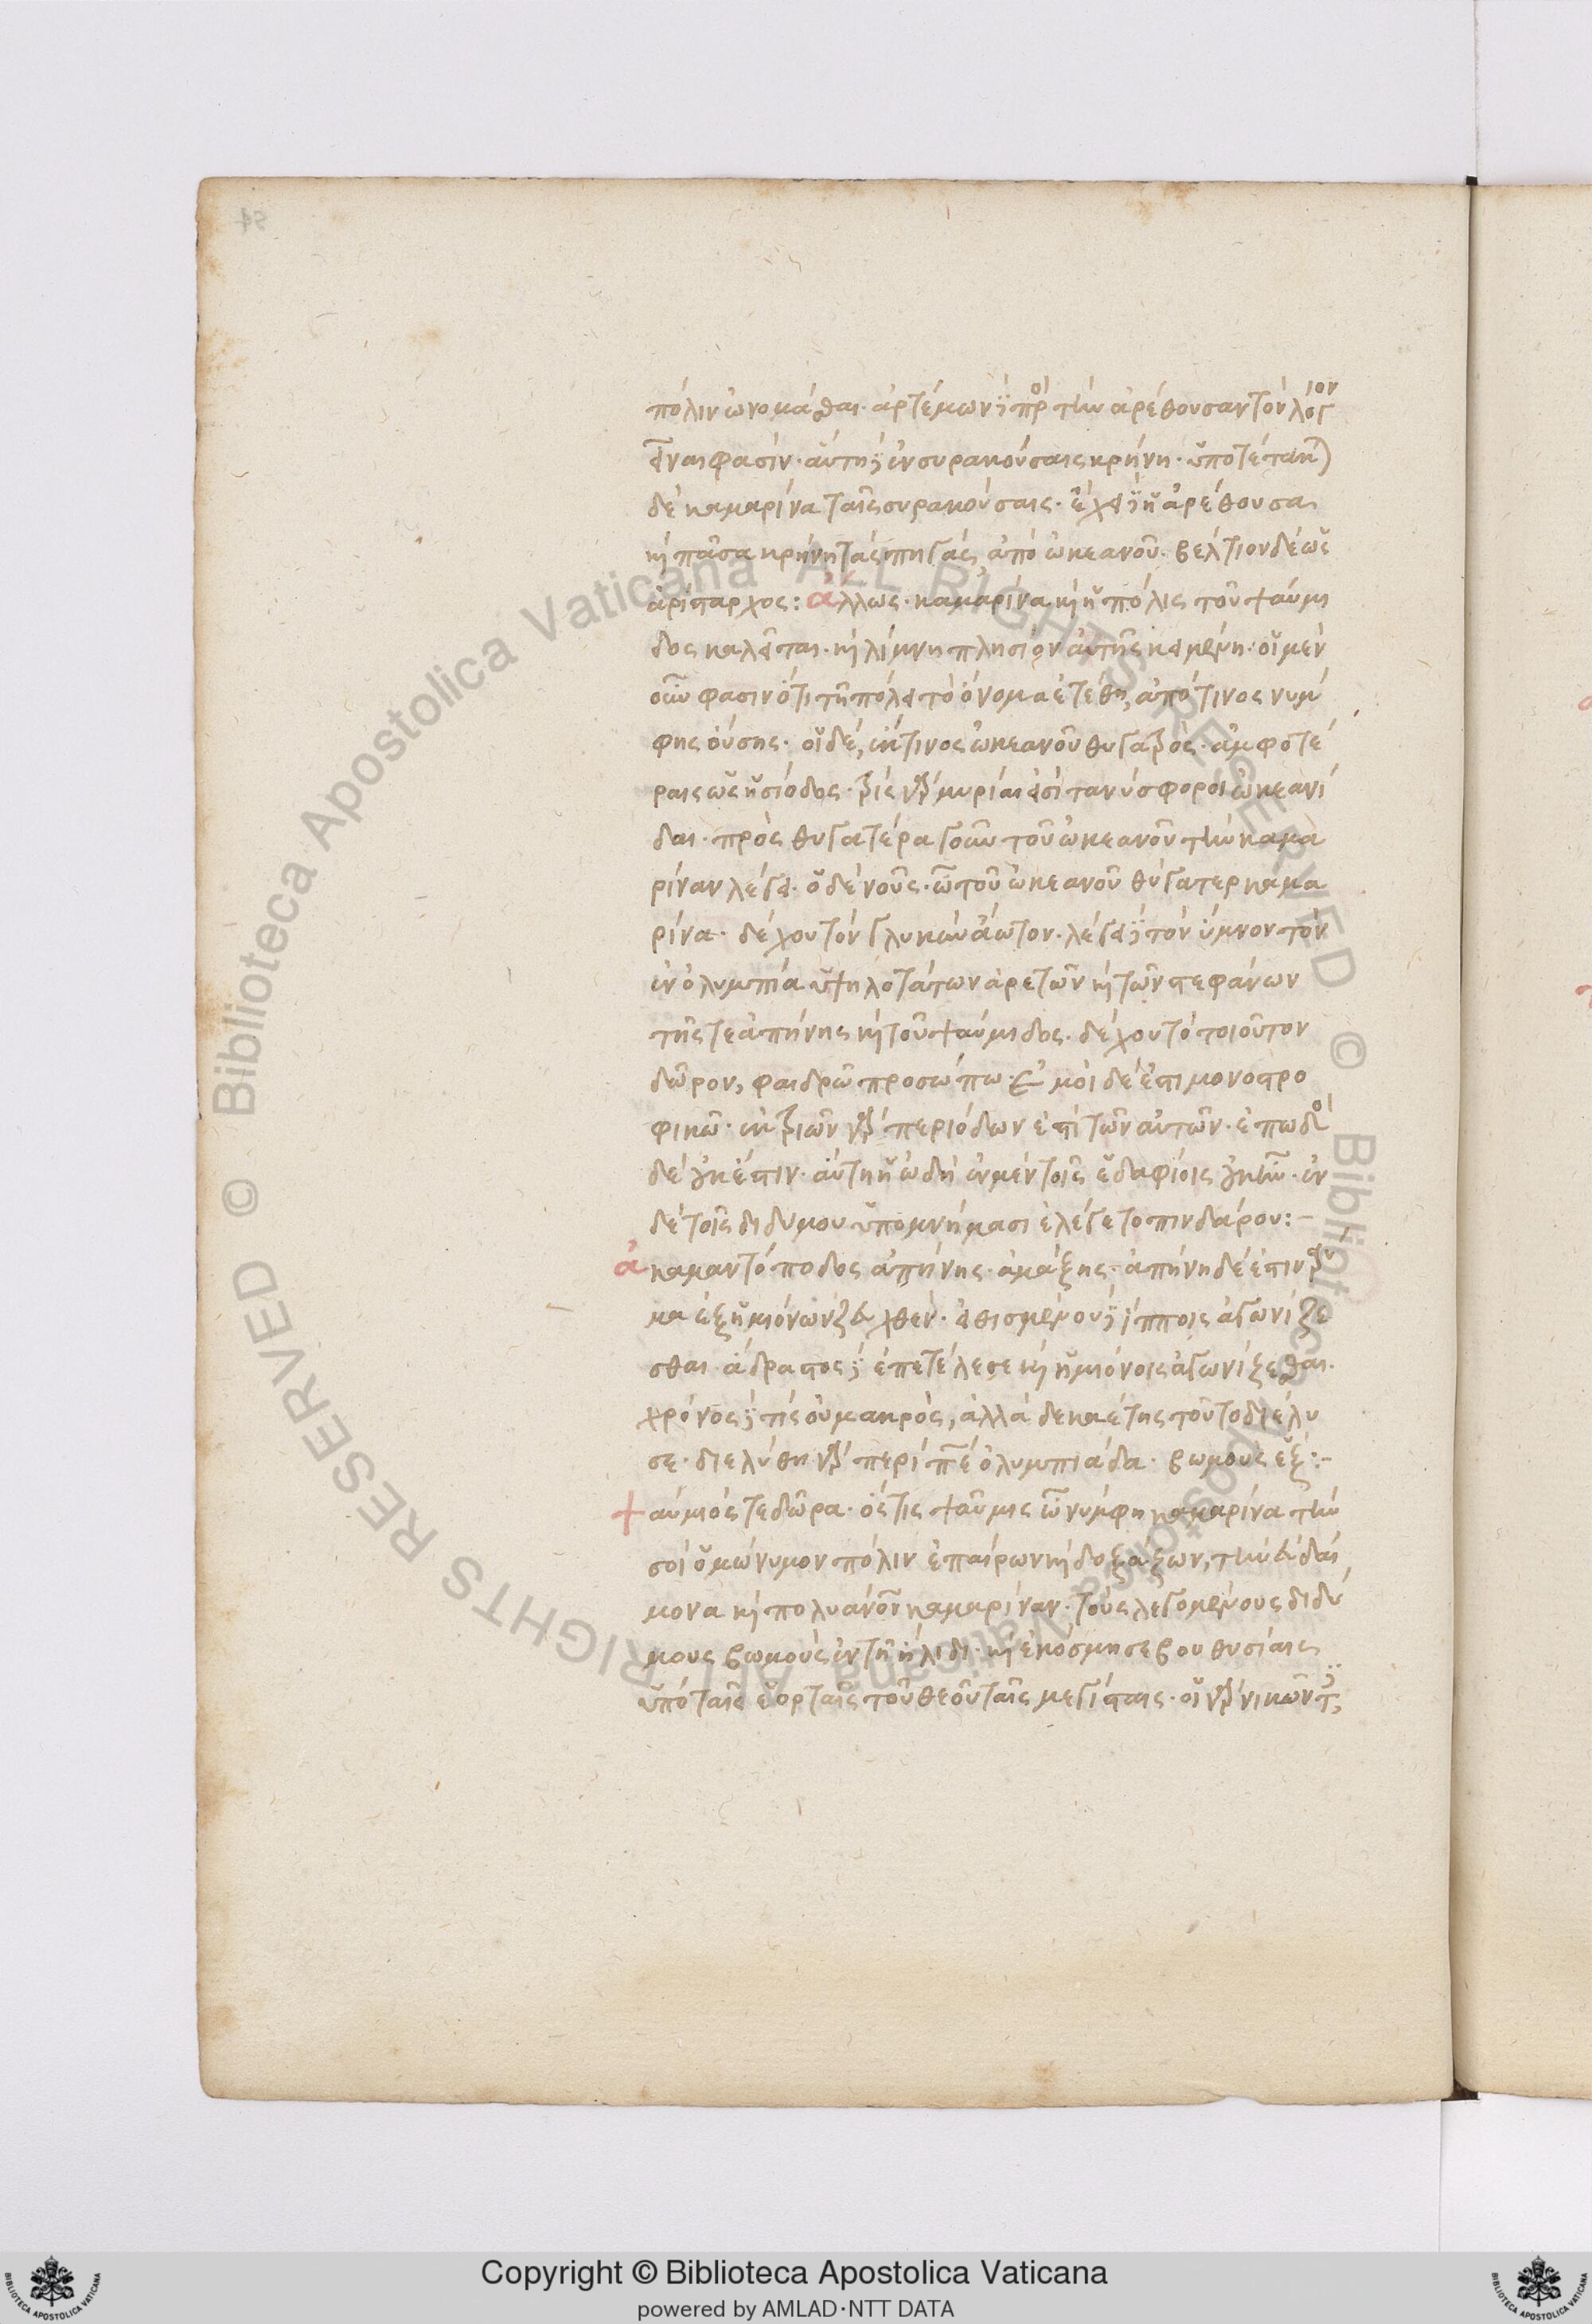 πόλιν ὠνομάσθαι· ἀρτέμων δὲ πρὸς τὴν ἀρέθουσαν τὸν λόγον
εἶναι φασὶν· αὕτη δὲ ἐν συρακούσαις κρήνη· ὑποτέτακται
δὲ καμαρίνα ταῖς συρακούσαις· ἔχει δὲ ἡ ἀρέθουσα
καὶ πᾶσα κρήνη τὰς πηγὰς ἀπὸ ὠκεανοῦ· βέλτιον δὲ ὡς
ἀρίσταρχος: ἄλλως· καμαρίνα καὶ ἡ πόλις τοῦ ψαύμι
δος καλεῖται· καὶ λίμνη πλησίον αὐτῆς κειμένη· οἱ μὲν
οὖν φασὶν ὅτι τῇ πόλει τὸ ὄνομα ἐτέθη, ἀπό τινος νύμ
φης οὔσης· οἱ δὲ, ἔκ τινος ὠκεανοῦ θυγατρὸς· ἀμφοτέ
ραις ὡς ἡσίοδος· τρὶς γὰρ μυρίαι εἰσὶ τανύσφοροι ὠκεανί
δαι· πρὸς θυγατέρα γοῦν τοῦ ὠκεανοῦ τὴν καμα
ρίναν λέγει· ὁ δὲ νοῦς· ὦ τοῦ ὠκεανοῦ θύγατερ καμα
ρίνα· δέχου τὸν γλυκὺν ἄωτον· λέγει δὲ τὸν ὕμνον τὸν
ἐν ὀλυμπία ὑψηλοτάτων ἀρετῶν καὶ τῶν στεφάνων
τῆς τε ἀπήνης καὶ τοῦ ψαύμιδος· δέχου τὸ τοιοῦτον
δῶρον, φαιδρῶ προσώπω· ἐμοὶ δέ ἐστι μονοστρο
φικῶ· ἐκ τριῶν γὰρ περιόδων ἐστὶ τῶν αὐτῶν· ἐπωδοὶ
δὲ οὐκ ἔστιν· αὕτη ἡ ὠδὴ ἐν μὲν τοῖς ἐδαφίοις οὐκ ἦν· ἐν
δὲ τοῖς διδύμου ὑπομνήμασι ἐλέγετο πινδάρου:–
ἀκαμαντόποδος ἀπήνης· ἁμάξης· ἀπήνη δέ ἐστιν ἅρ
μα ἐξ ἡμιόνων ζευχθὲν· εἰθισμένου δὲ ἵπποις ἀγωνίζε
σθαι· ἄδραστος δὲ ἐπετέλεσε καὶ ἡμιόνοις ἀγωνίζεσθαι·
χρόνος δέ τις οὐ μακρὸς, ἀλλὰ δεκαέτης τοῦτο διέλυ
σε· διελύθη γὰρ περὶ πε ὀλυμπιάδα· βωμοὺς ἕξ:–
ψαύμιός τε δῶρα· ὅστις ψαῦμις ὦ νύμφη καμαρίνα τὴν
σοὶ ὁμώνυμον πόλιν ἐπαίρων καὶ δοξάζων, τὴν εὐδαί
μονα καὶ πολυάνουν καμαρίναν· τοὺς λεγομένους διδύ
μους βωμοὺς ἐν τῇ ἤλιδι· καὶ ἐκόσμησε βουθυσίαις
ὑπὸ ταῖς ἑορταῖς τοῦ θεοῦ ταῖς μεγίσταις· οἱ γὰρ νικῶντες